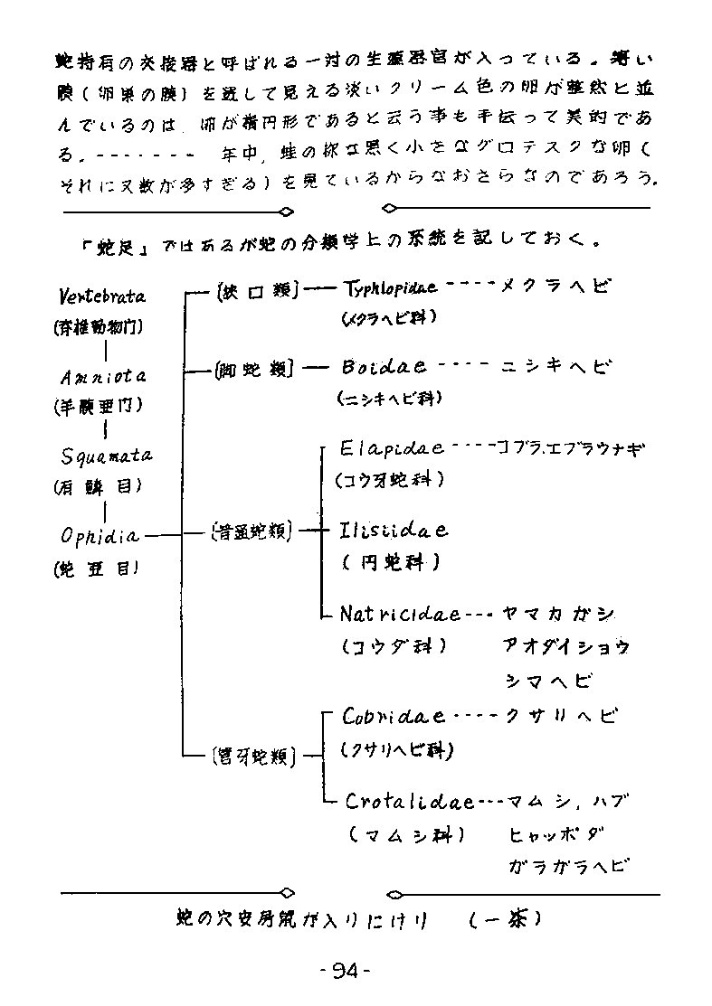 蛇特有の交接器と呼ばれる一対の生殖器官が入っている。薄い
膜(卵巣の膜)を透して見える淡いクリーム色の卵が整然と並
んでいるのは、卵が楕円形であると云う事も手伝って美的であ
る。-------- 年中、蛙の様な黒く小さなグロテスクな卵(
それに又数が多すぎる)を見ているからなおさらなのであろう。
「蛇足」ではあるが蛇の分類学上の系統を記しておく。
Vertebrata [狭口類] Typhlopidae ---- メクラヘビ
(脊椎動物門) (メクラヘビ科)
Amniota [脚蛇類] Boidae ---- ニシキヘビ
(羊膜亜門) (ニシキヘビ科)
Squamata Elapidae ---- コブラ.エブラウナギ
(有鱗目) (コウ牙蛇科)
Ophidia [普通蛇類] Ilisiidae
(蛇亜目) (円蛇科)
Natricidae --- ヤマカガシ
(コウダ科) アオダイショウ
シマヘビ
Cobridae ---- クサリヘビ
[管牙蛇類] (クサリヘビ科)
Crotalidae --- マムシ,ハブ
(マムシ科) ヒャッポダ
ガラガラヘビ
蛇の穴安房鼠が入りにけり (一茶)
-94-